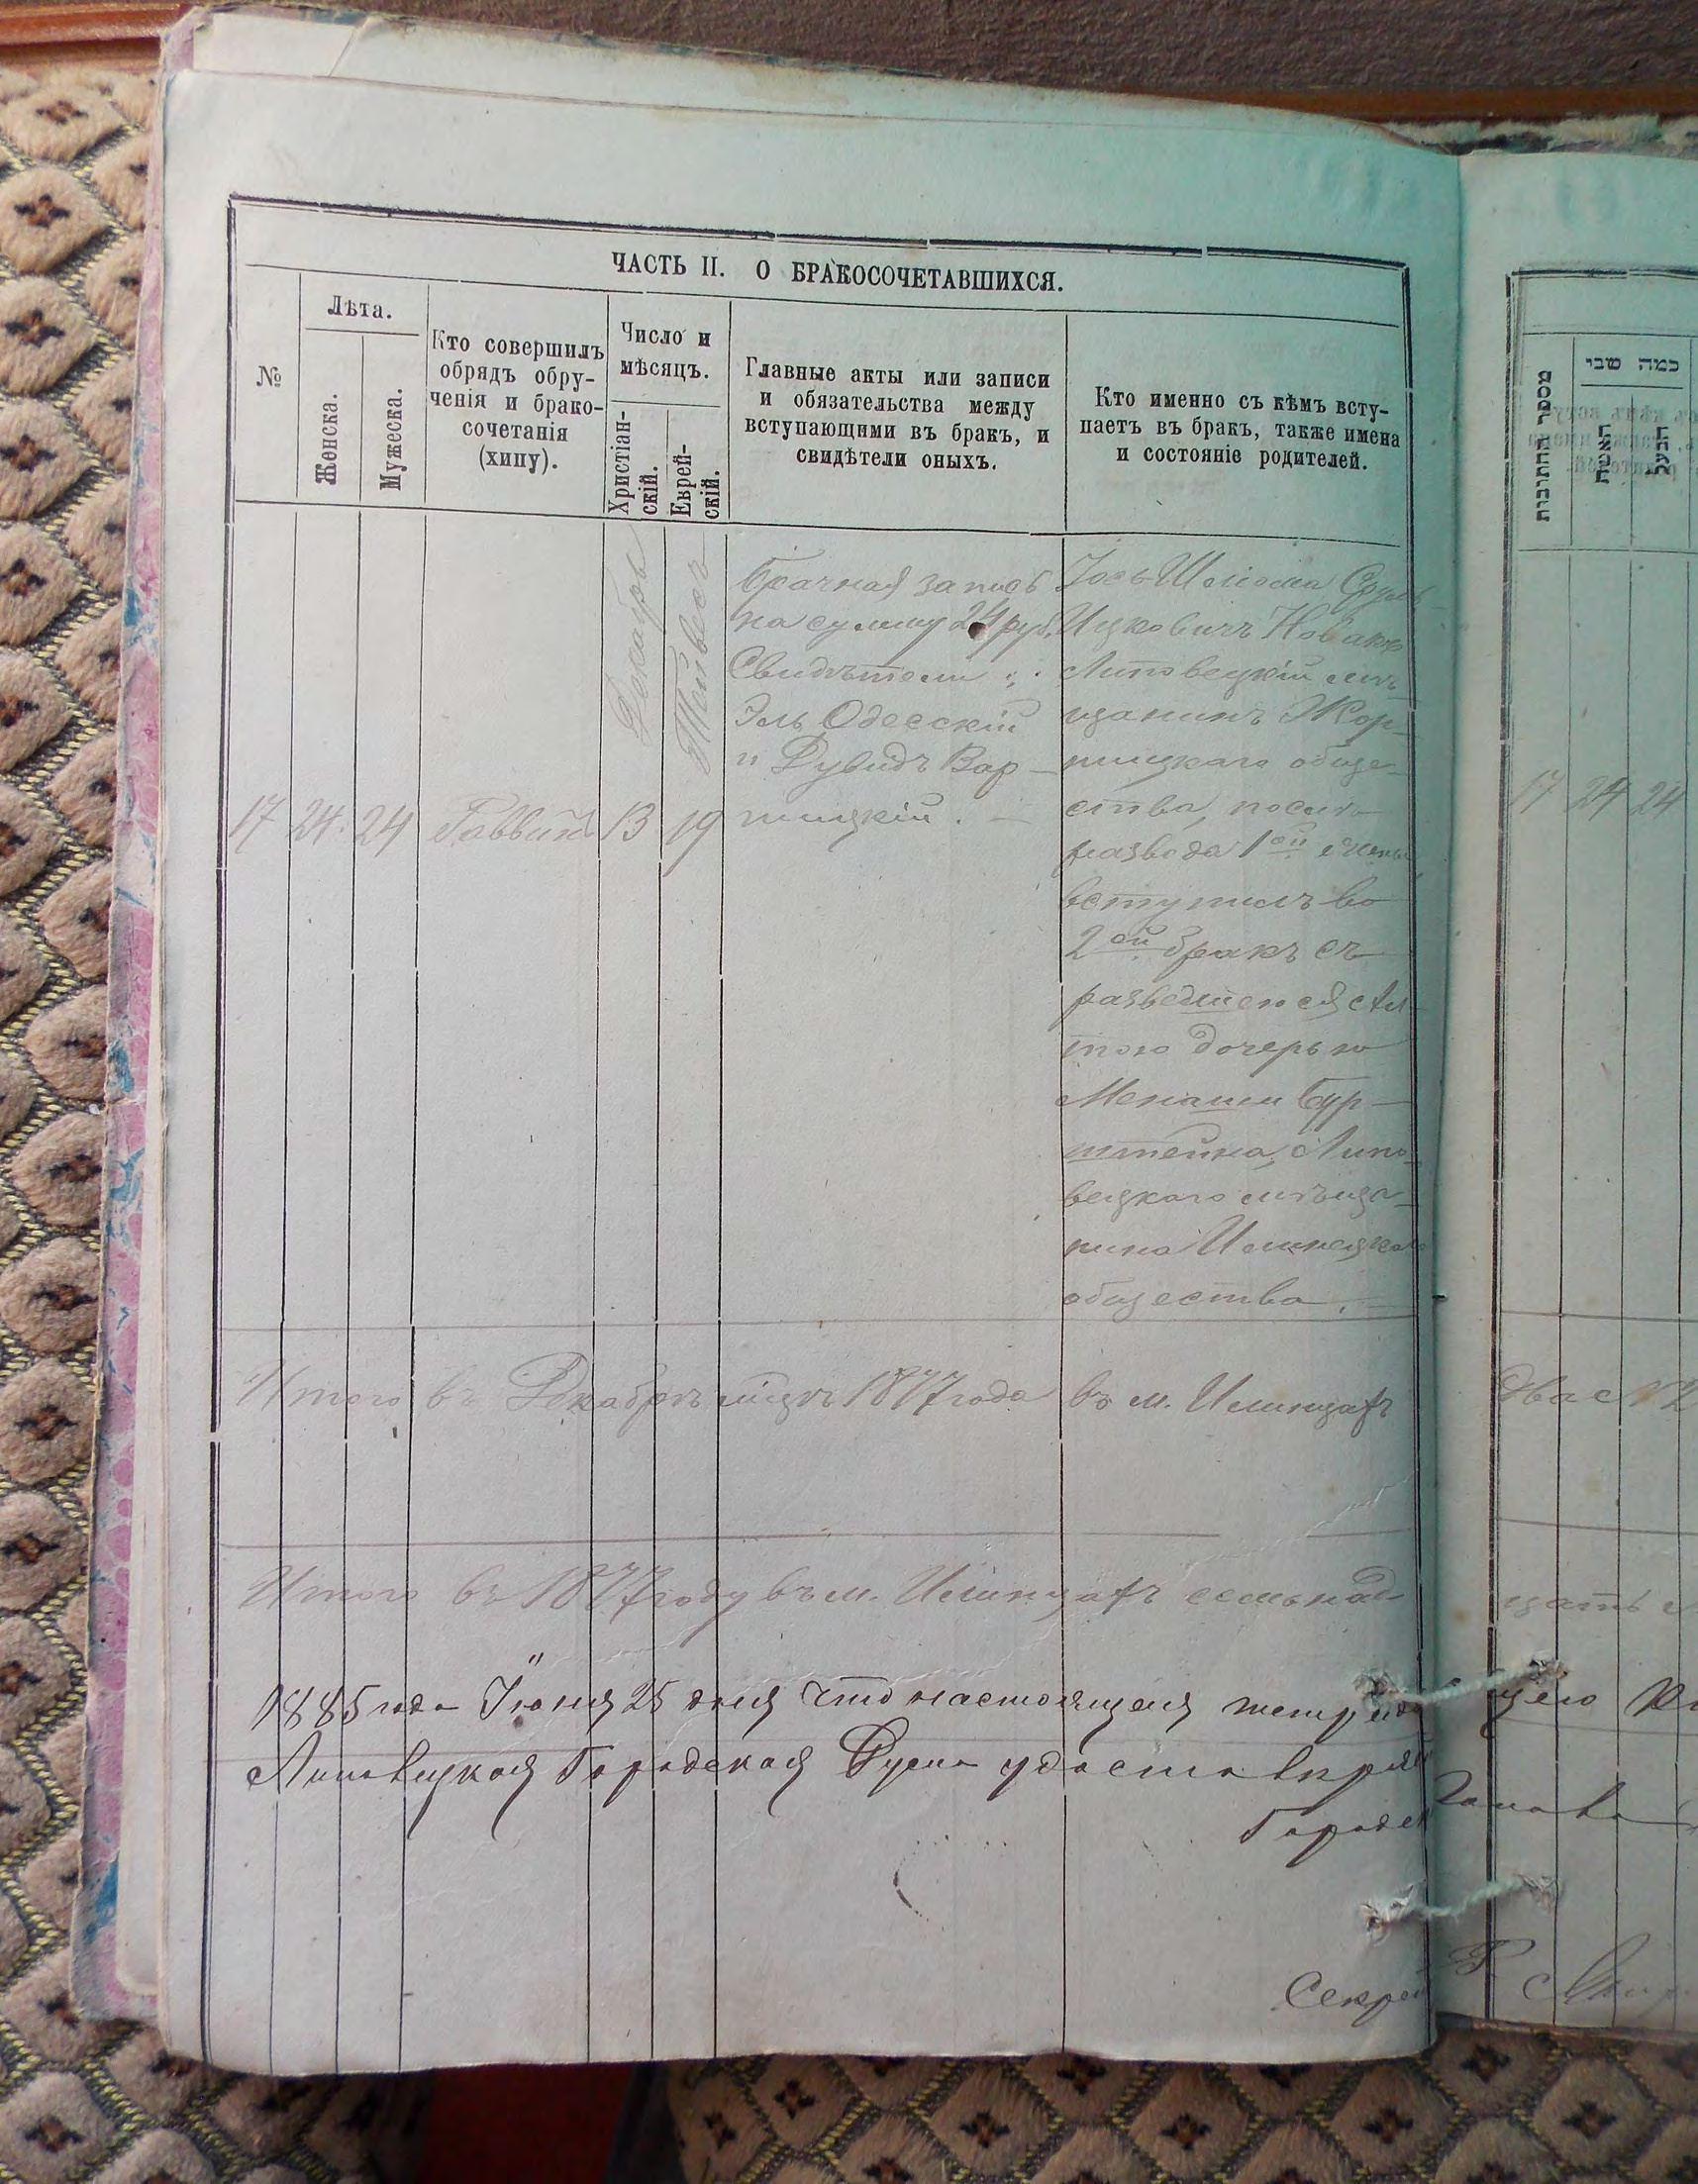 ЧАСТЬ II. О БРАКОСОЧЕТАВШИХСЯ.
№
Лѣта.
Женска.
Мужеска.
Кто совершилъ
обрядъ обру-
ченія и брако-
сочетанія
(хипу).
Число и
мѣсяцъ.
Христіан-
скій.
Еврей-
скій.
Главные акты или записи
и обязательства между
вступающими въ бракъ, и
свидѣтели оныхъ.
Кто именно съ кѣмъ всту-
паетъ въ бракъ, также имена
и состояніе родителей.
17
24
24
Раввинъ
Декабрь
13
19
Брачная запись
на сумму 24 руб.
Свидѣтели:
Эль Одесскій
и Дувидъ Вар-
шицкій.
Іось-Шлiома Сруль
Ицковичъ Новакъ
Липовецкій мѣ-
щанинъ Жор-
нищкаго обще-
ства, послѣ
развода 1ой жены
вступилъ во
2ой бракъ съ
разведшеюся
тою дочерью
Менаши Бур-
штейна, Липо-
вецкаго мѣща-
нина Илинецкаго
общества.
Итого въ Декабрѣ мцѣ 1877 года въ м. Илинцахъ
Итого въ 1877 году въ м. Илинцахъ семьнад-
1885 года Іюня 25 дня что настоящая
Липовецкая Городская Дума
Городск
Секрет
מספר החתובות
כמה שני
האשה
הבעל
17 24 24
два
цать